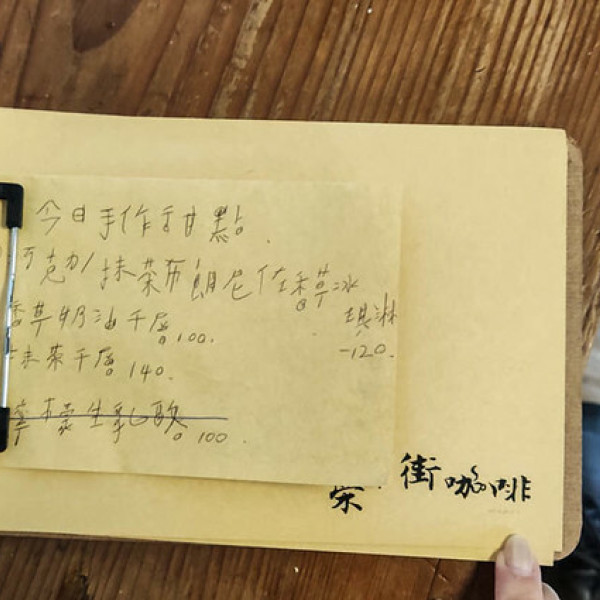 今日手作甜點
巧克力/抹茶布朗尼佐香草冰
淇淋
-120.
香草奶油千層。100.
抹茶千層。140.
檸檬生乳酪。100.
榮 街咖啡